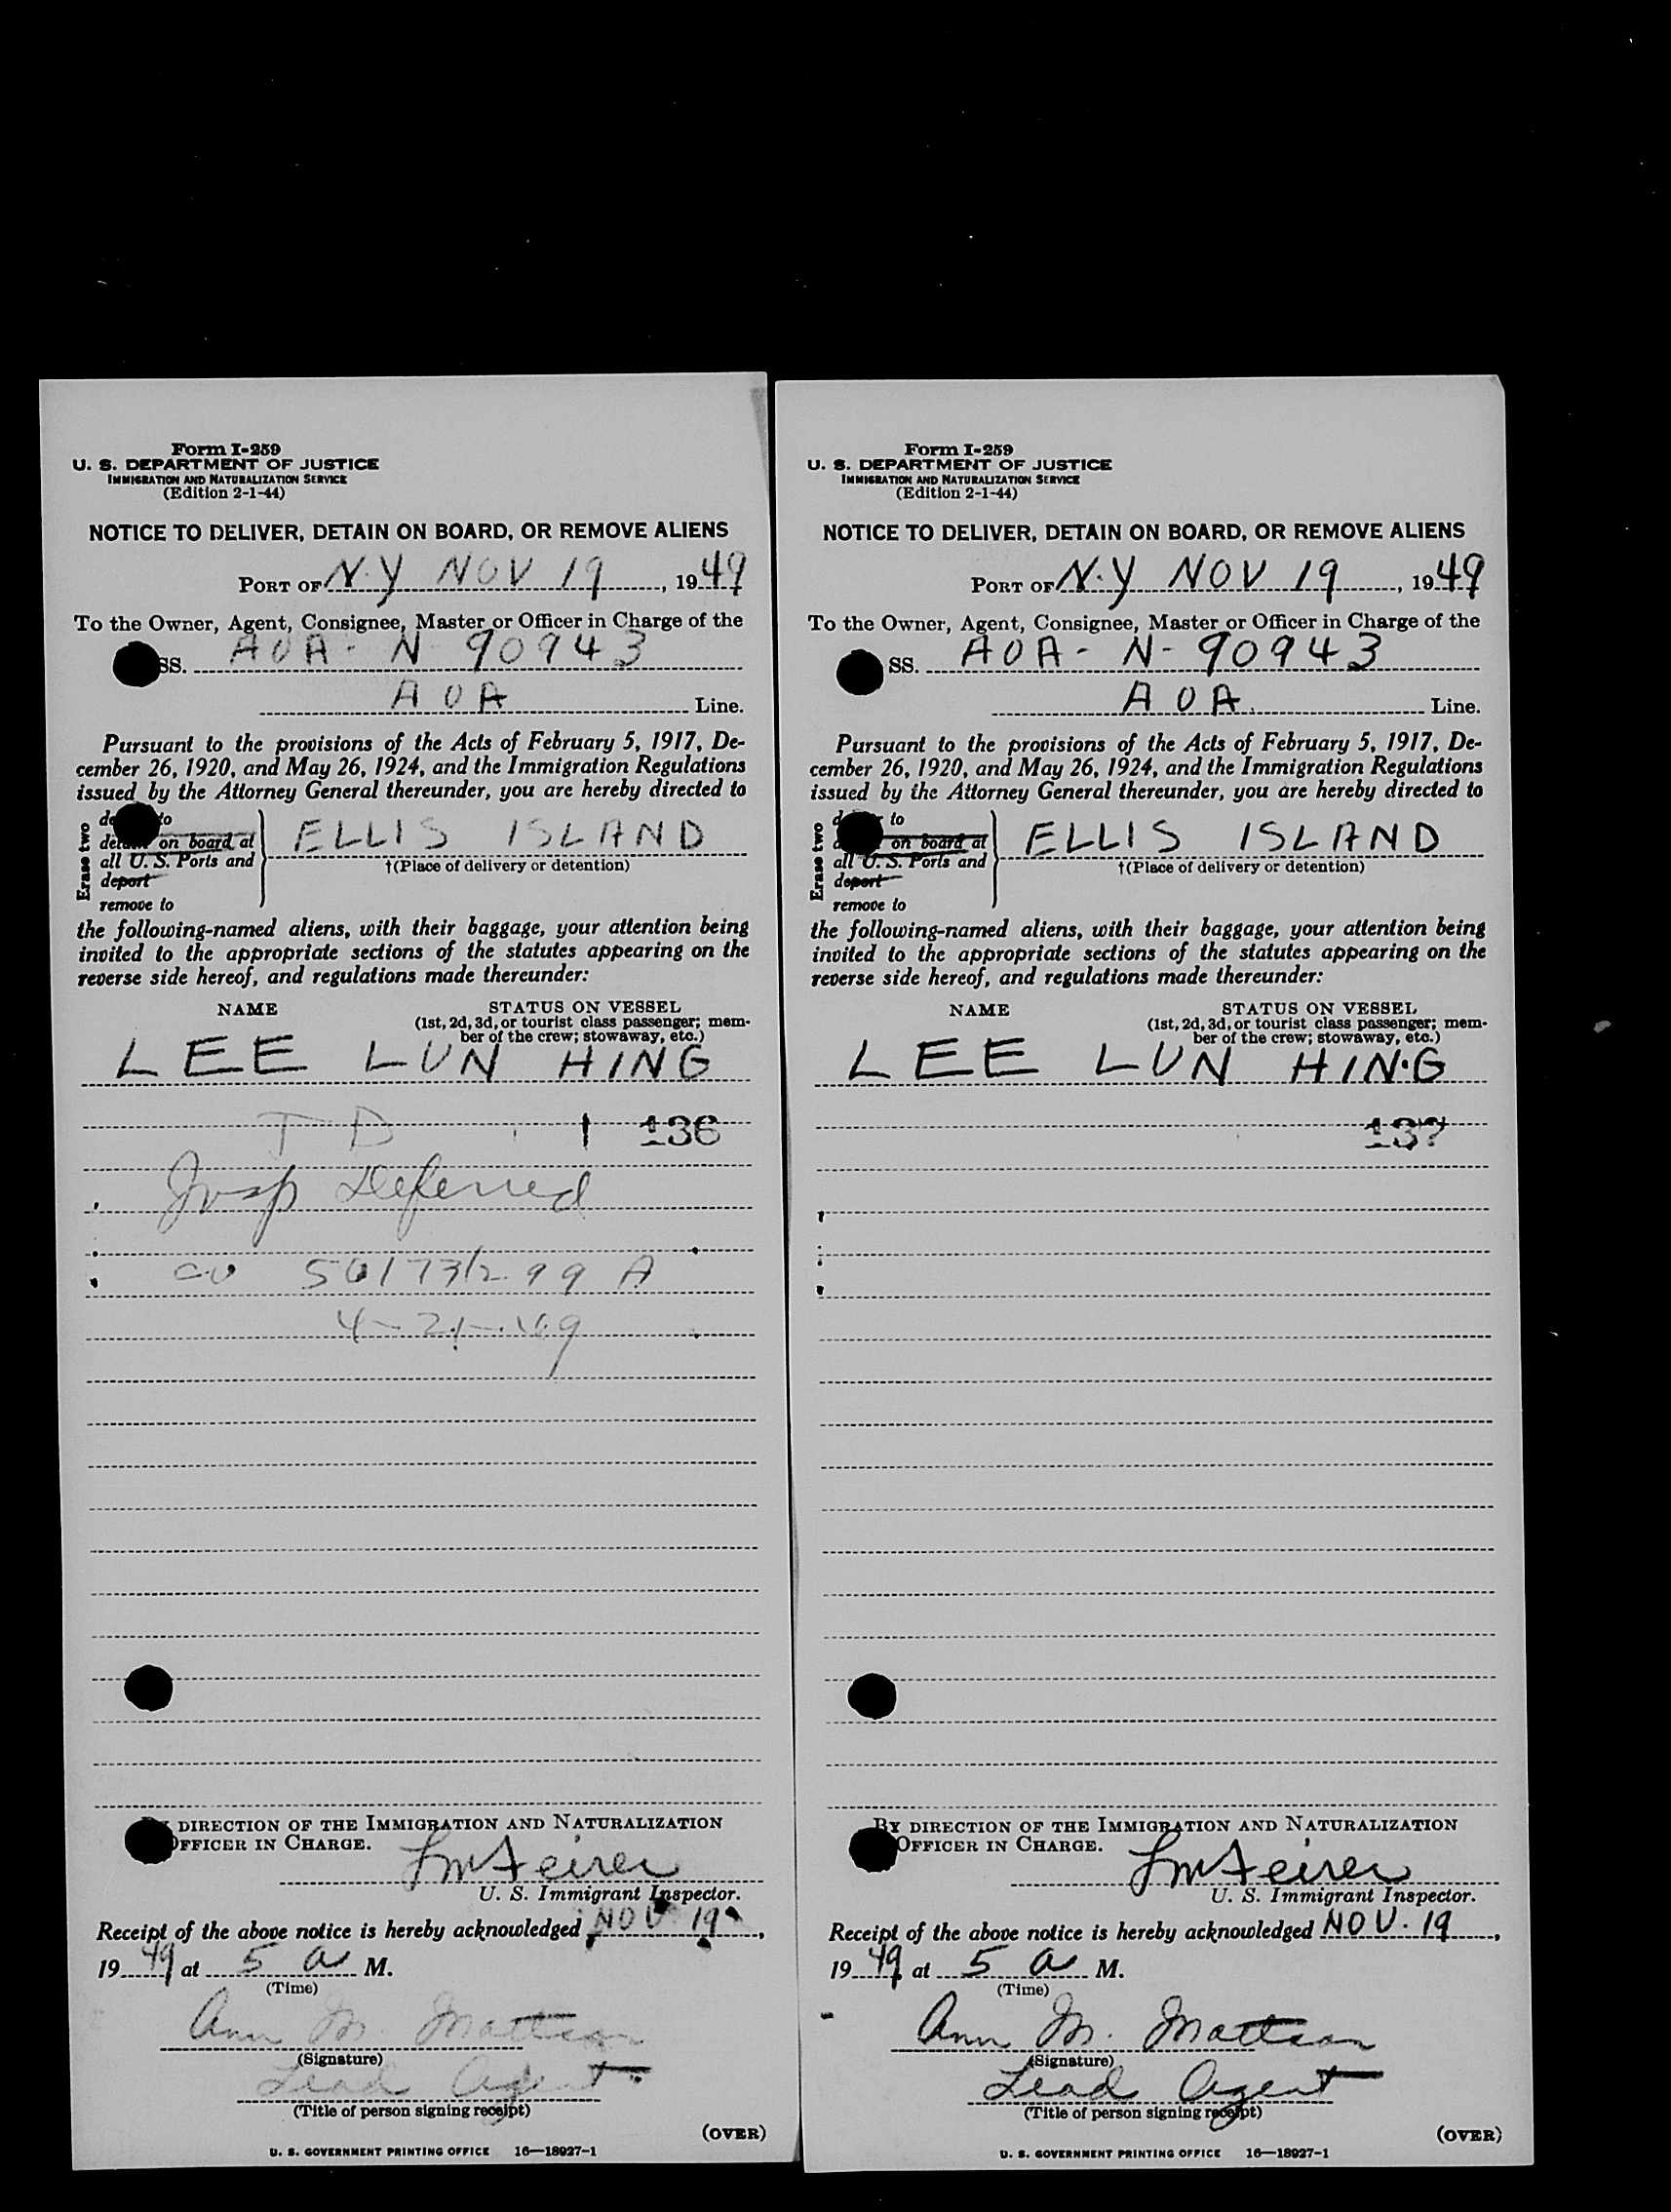 Form I-259
U. S. DEPARTMENT OF JUSTICE
IMMIGRATION AND NATURALIZATION SERVICE
(Edition 2-1-44)
NOTICE TO DELIVER, DETAIN ON BOARD, OR REMOVE ALIENS
PORT OF N.Y NOV 19, 1949
To the Owner, Agent, Consignee, Master or Officer in Charge of the
SS. AOA - N 90943
AOA Line.
Pursuant to the provisions of the Acts of February 5, 1917, De-
cember 26, 1920, and May 26, 1924, and the Immigration Regulations
issued by the Attorney General thereunder, you are hereby directed to
Erase two
to
on board at
all U. S. Ports and
deport
remove to
ELLIS ISLAND
†(Place of delivery or detention)
the following-named aliens, with their baggage, your attention being
invited to the appropriate sections of the statutes appearing on the
reverse side hereof, and regulations made thereunder:
NAME
STATUS ON VESSEL
(1st, 2d, 3d, or tourist class passenger; mem-
ber of the crew; stowaway, etc.)
LEE LUN HING
T D 1 136
Insp Deferred
A
DIRECTION OF THE IMMIGRATION AND NATURALIZATION
OFFICER IN CHARGE.
U. S. Immigrant Inspector.
Receipt of the above notice is hereby acknowledged NOV 19,
1949 at 5 a M.
(Time)
Ann M. Mattson
(Signature)
Lead Agent
(Title of person signing receipt)
(OVER)
U. S. GOVERNMENT PRINTING OFFICE 16—18927-1
Form I-259
U. S. DEPARTMENT OF JUSTICE
IMMIGRATION AND NATURALIZATION SERVICE
(Edition 2-1-44)
NOTICE TO DELIVER, DETAIN ON BOARD, OR REMOVE ALIENS
PORT OF N.Y NOV 19, 1949
To the Owner, Agent, Consignee, Master or Officer in Charge of the
SS. AOA - N - 90943
AOA Line.
Pursuant to the provisions of the Acts of February 5, 1917, De-
cember 26, 1920, and May 26, 1924, and the Immigration Regulations
issued by the Attorney General thereunder, you are hereby directed to
Erase two
to
on board at
all U. S. Ports and
deport
remove to
ELLIS ISLAND
†(Place of delivery or detention)
the following-named aliens, with their baggage, your attention being
invited to the appropriate sections of the statutes appearing on the
reverse side hereof, and regulations made thereunder:
NAME
STATUS ON VESSEL
(1st, 2d, 3d, or tourist class passenger; mem-
ber of the crew; stowaway, etc.)
LEE LUN HING
137
BY DIRECTION OF THE IMMIGRATION AND NATURALIZATION
OFFICER IN CHARGE.
U. S. Immigrant Inspector.
Receipt of the above notice is hereby acknowledged NOV. 19,
1949 at 5 a M.
(Time)
Ann M. Mattson
(Signature)
Lead Agent
(Title of person signing receipt)
(OVER)
U. S. GOVERNMENT PRINTING OFFICE 16—18927-1